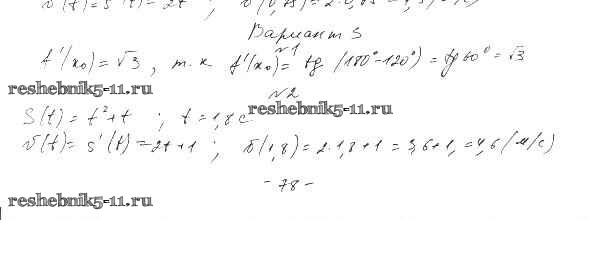 v(t)=s'(t)=2t ;
Вариант 3
№1
f'(x₀)=√3, т.к f'(x₀)= tg (180°-120°) = tg 60° = √3
reshebnik5-11.ru
№2
reshebnik5-11.ru
S(t)= t²+t ; t=1,8 c
v(t)= s'(t)=2t+1 ; v(1,8)=2·1,8+1=3,6+1,=4,6(м/с)
- 78 -
reshebnik5-11.ru